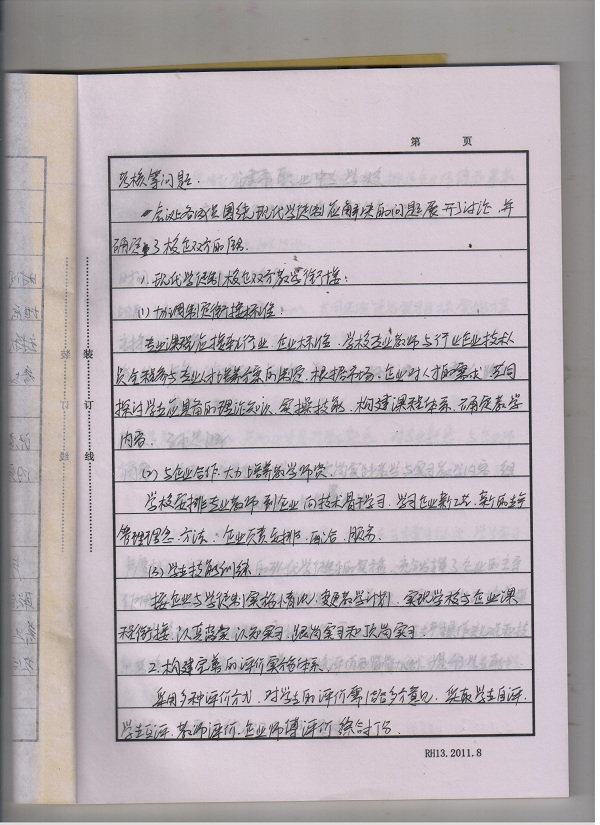 第 页
考核等问题.
会议上各成员围绕现代学徒制应解决的问题展开了讨论,并
确定了校企双方的
1.现代学徒制校企双方教学衔接:
(1)协调制定衔接标准:
专业课程应接轨行业、企业标准,学校专业教师与行业企业技术人
员全程参与专业人才培养方案的制定,根据市场、企业对人才的需求,共同
探讨学生应具备的理论知识、实操技能,构建课程体系,确定教学
内容.
(2)与企业合作,大力培养教学师资
学校安排专业教师到企业向技术骨干学习,学习企业新工艺、新的
管理理念、方法;企业负责安排、
(3)学生技能训练
按企业与学徒制实施情况,变更教学计划,实现学校与企业课
程衔接,认真落实认知实习、跟岗实习和顶岗实习.
2.构建完善的评价实施体系.
采用多种评价方式,对学生的评价需结合多方意见,采取学生自评、
学生互评、教师评价、企业师傅评价综合评价
装
订
线
RH13.2011.8